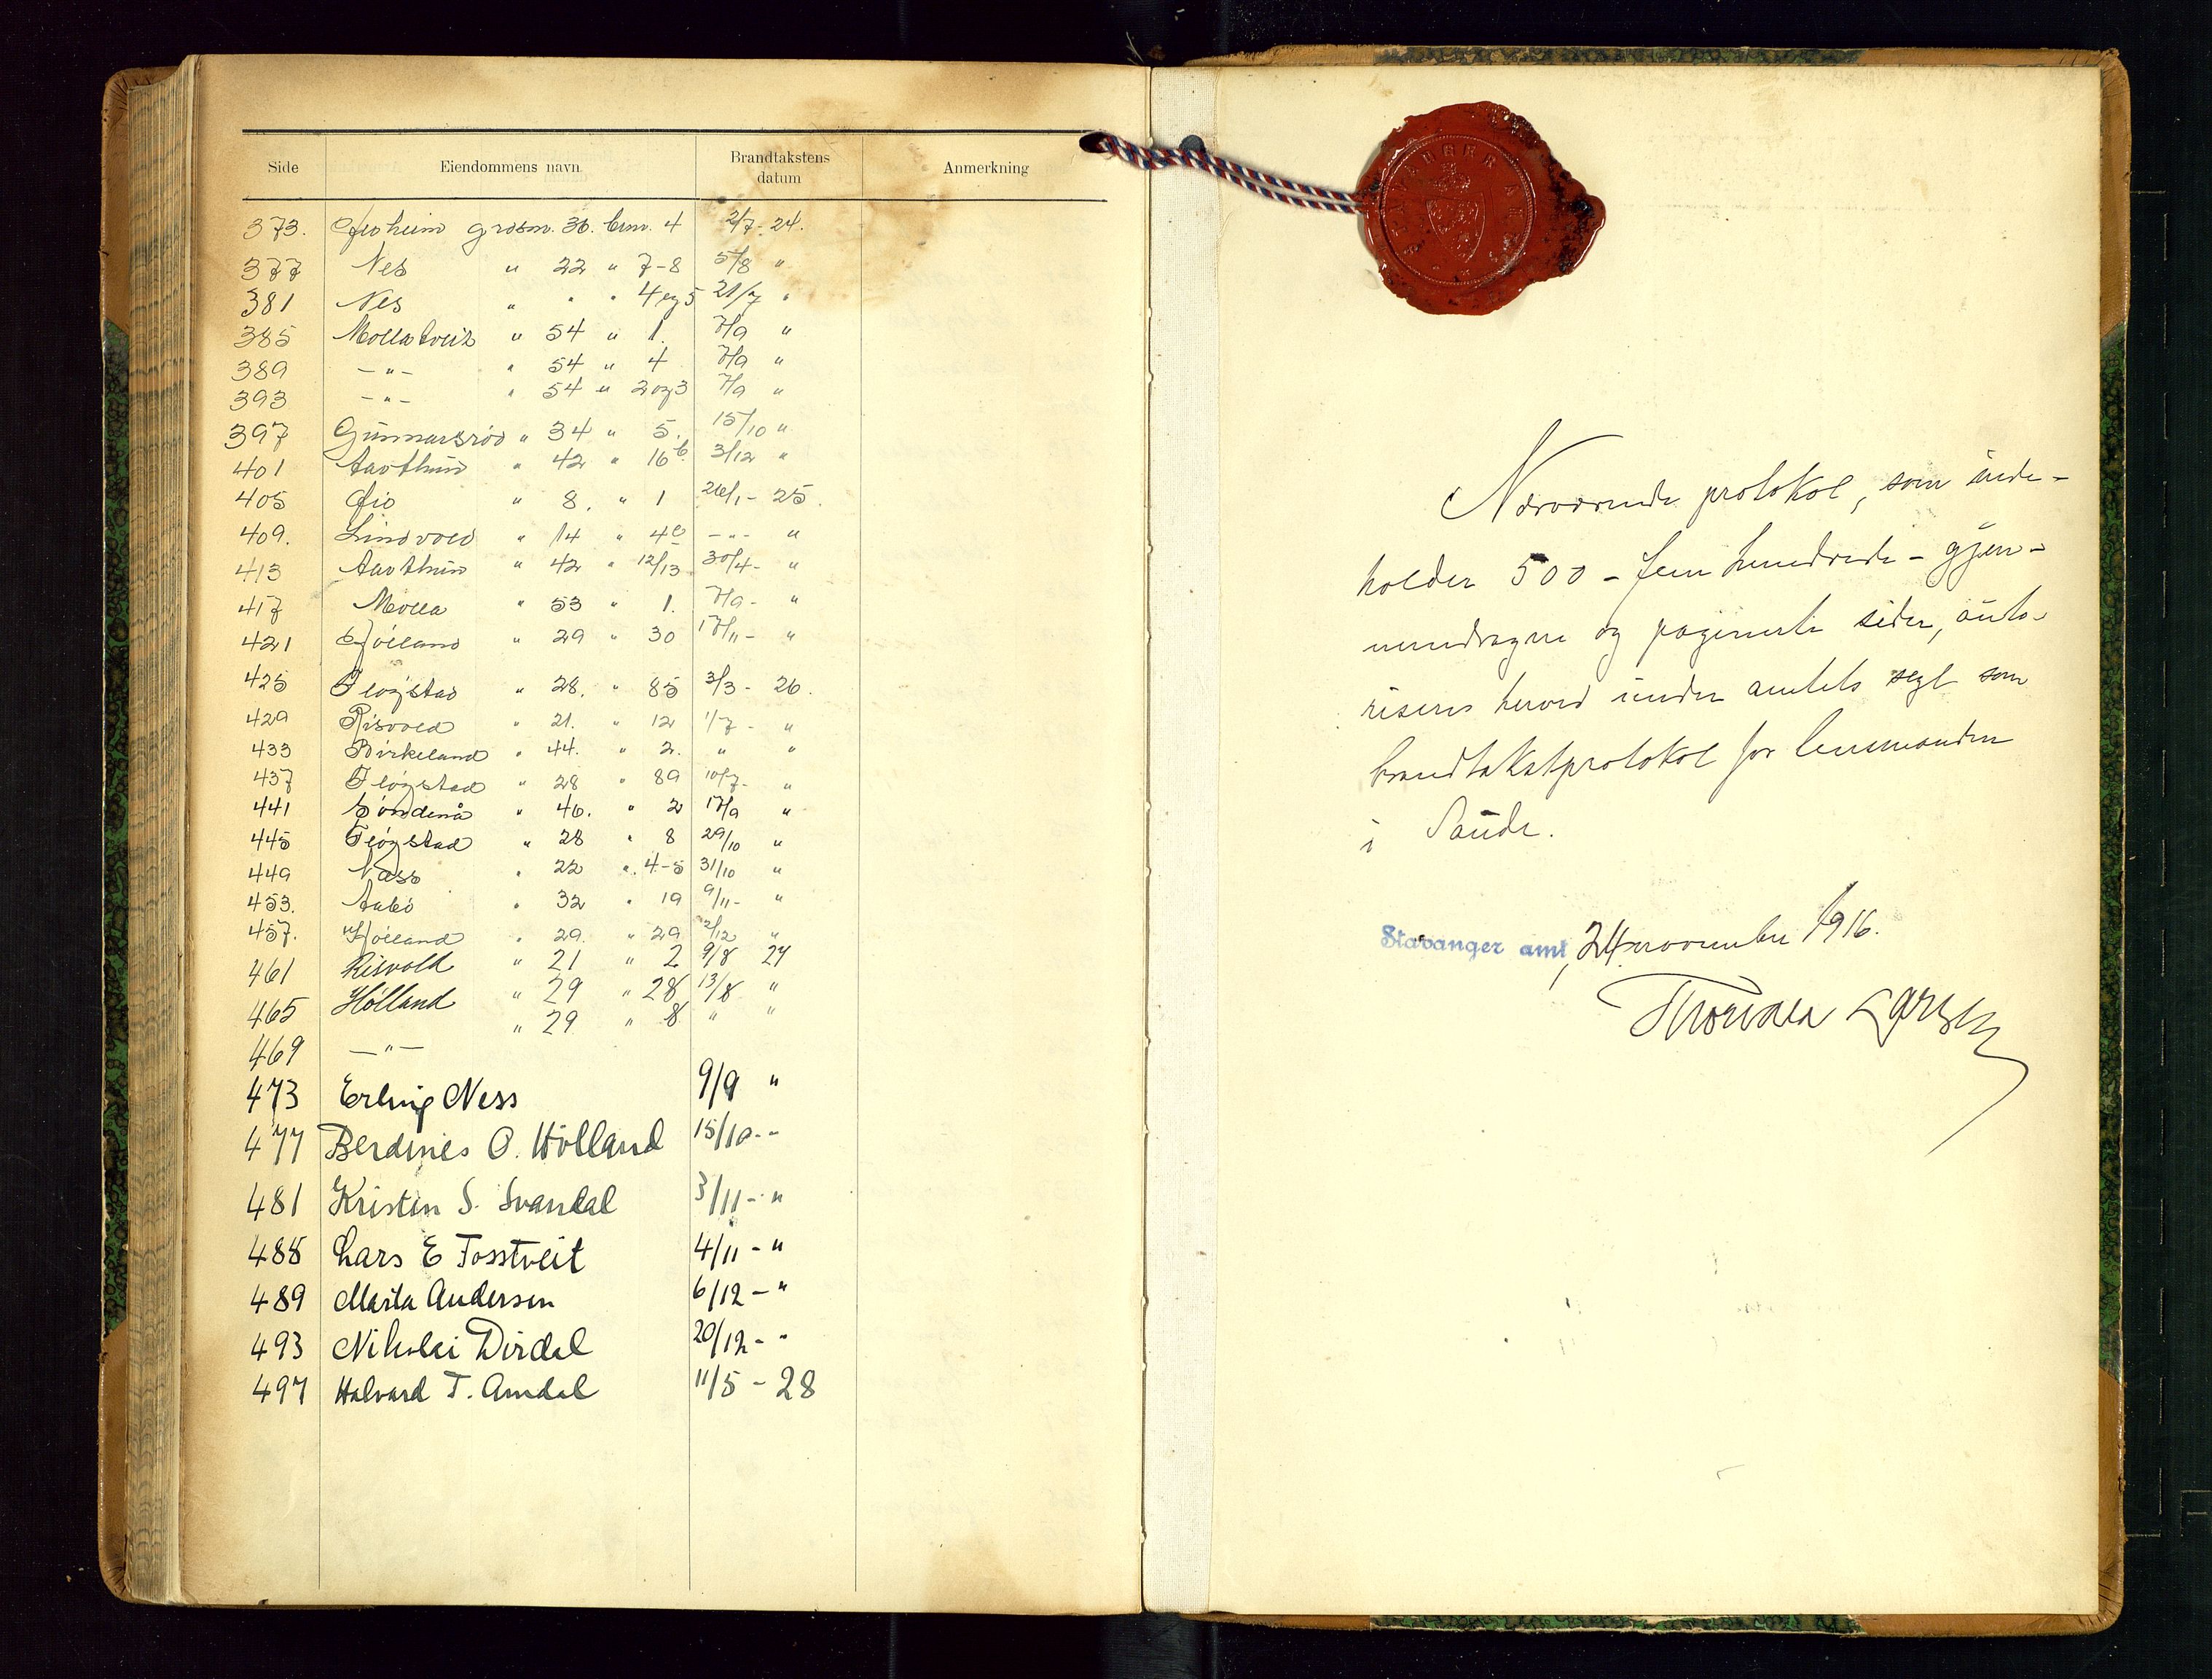 Side Eiendommens navn Brandtakstens datum Anmerkning
373. grdsn. 36. brn. 4 2/7-24.
377 Nes " 22 " 7-8 5/8 "
381 Nes " " " 4 og 5 21/7 "
385 Mollatveit " 54 " 1. 7/9 "
389 -"- " 54 " 4 7/9 "
393 -"- " 54 " 2 og 3 7/9 "
397 Gunnarsrød " 34 " 5. 15/10 "
401 Aarthun " 42 " 16b 3/12 "
405 " 8. " 1 26/1- 25.
409. Lindvold " 14 " -"- "
413 Aarthun " 42 " 12/13 30/4- "
417 Molla " 53 " 1. 7/9- "
421 " 29 " 30 17/11- "
425 Fløgstad " 28. " 85 3/3- 26.
429 Risvold " 21. " 12 1/7- "
433 Birkeland " 44. " 2. " "
437 Fløgstad " 28 " 89 10/7- "
441 Søndenå " 46. " 2 17/9 "
445 Fløgstad " 28 " 8 29/10 "
449 Næss " 22 " 4-5 31/10 "
453. Aabø " 32 " 19 9/11- "
457. Hølland " 29. " 29 /12 "
461 Risvold " 21 " 2 9/8 27
465 Hølland " 29 " 28 13/8 "
469 -"- " 29 " 8 " "
473 Erling Ness 9/9 "
477 Berdines O. Hølland 15/10--
481 Kristen S. Svandal 3/11-"
485 Lars E Fosstveit 4/11-"
489 Marta Andersen 6/12-"
493 Nikolai Dirdal 20/12-"
497 Halvard T. Amdal 11/5-28
Nærværende protokol, som inde-
holder 500 - fem hundrede - gjen-
nemdragne og paginerte sider, auto-
riseres herved under amtets segl som
brandtakstprotokol for lensmanden
i Saude.
Stavanger amt, 24 november 1916.
Thorvald Larsen